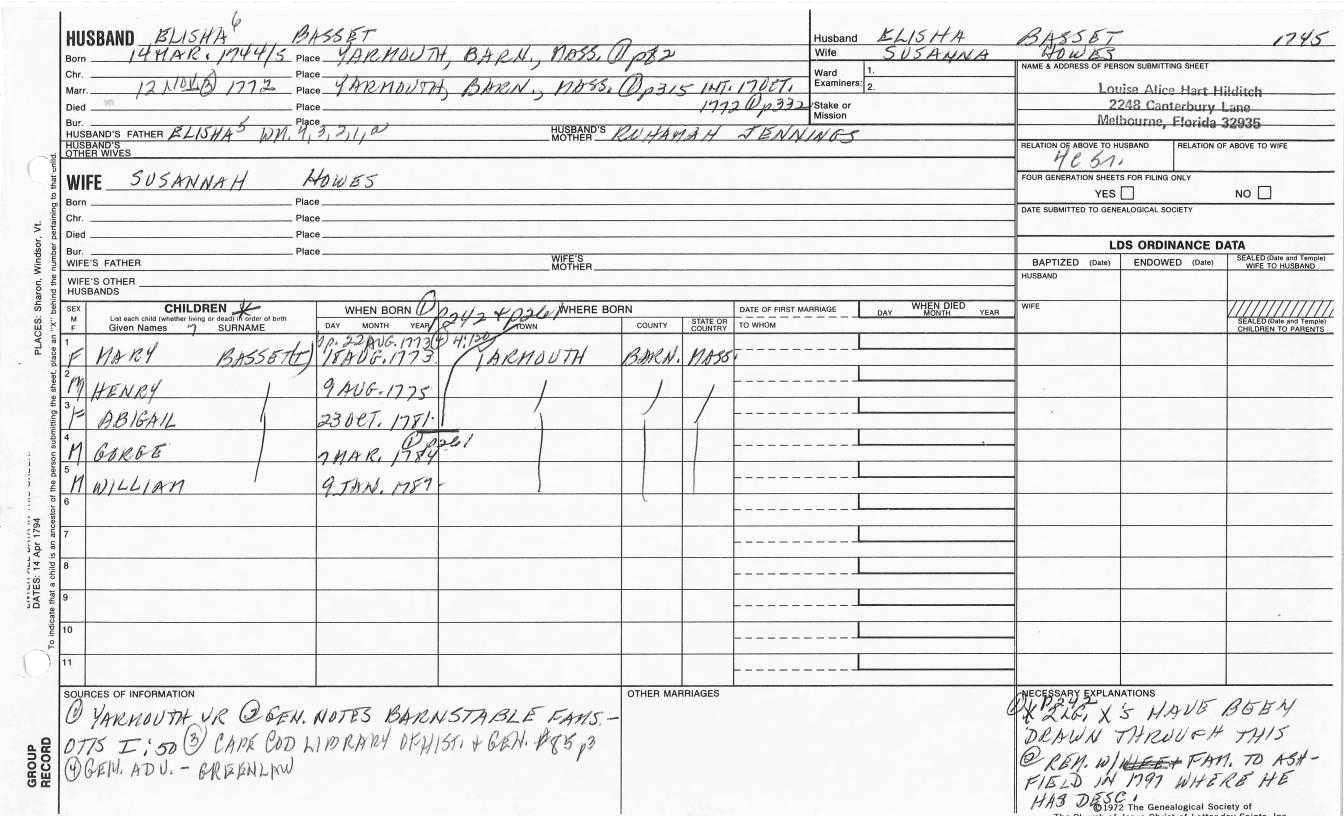 HUSBAND ELISHA 6 BASSET
Born 14 MAR. 1744/5 Place YARMOUTH, BARN., MASS. ① p82
Chr. Place
Marr. 12 NOV ③ 1772 Place YARMOUTH, BARN., MASS. ① p315 INT. 17 OCT.
Died Place 1772 ① p332
Bur. Place
HUSBAND'S FATHER ELISHA 5 WM. 4, 3, 2, 1, a HUSBAND'S MOTHER RUHAMAH JENNINGS
HUSBAND'S OTHER WIVES
WIFE SUSANNAH HOWES
Born Place
Chr. Place
Died Place
Bur. Place
WIFE'S FATHER WIFE'S MOTHER
WIFE'S OTHER HUSBANDS
Husband ELISHA BASSET 1745
Wife SUSANNA HOWES
Ward Examiners: 1.
2.
Stake or Mission
NAME & ADDRESS OF PERSON SUBMITTING SHEET
Louise Alice Hart Hilditch
2248 Canterbury Lane
Melbourne, Florida 32935
RELATION OF ABOVE TO HUSBAND RELATION OF ABOVE TO WIFE
FOUR GENERATION SHEETS FOR FILING ONLY
YES NO
DATE SUBMITTED TO GENEALOGICAL SOCIETY
LDS ORDINANCE DATA
BAPTIZED (Date) ENDOWED (Date) SEALED (Date and Temple) WIFE TO HUSBAND
HUSBAND
WIFE
SEALED (Date and Temple) CHILDREN TO PARENTS
SEX M F CHILDREN * WHEN BORN ① p242 & p261 WHERE BORN DATE OF FIRST MARRIAGE WHEN DIED
List each child (whether living or dead) in order of birth
Given Names 7 SURNAME DAY MONTH YEAR TOWN COUNTY STATE OR COUNTRY TO WHOM DAY MONTH YEAR
22 AUG. 1773 ④ 4:120
1 F MARY BASSET(T) 18 AUG. 1773 YARMOUTH BARN. MASS.
2 M HENRY 9 AUG. 1775
3 F ABIGAIL 23 OCT. 1781
① p261
4 M GORGE 7 MAR. 1784
5 M WILLIAM 9 JAN. 1787
6
7
8
9
10
11
SOURCES OF INFORMATION
① YARMOUTH VR ② GEN. NOTES BARNSTABLE FAMS. -
OTIS I:50 ③ CAPE COD LIBRARY OF HIST. & GEN. #85 p3
④ GEN. ADV. - GREENLAW
OTHER MARRIAGES
NECESSARY EXPLANATIONS
① P242
LG. X'S HAVE BEEN
DRAWN THROUGH THIS
@ REM. W/ FAM. TO ASH-
FIELD IN 1797 WHERE HE
HAS DESC.
©1972 The Genealogical Society of
PLACES: Sharon, Windsor, Vt.
DATES: 14 Apr 1794
To indicate that a child is an ancestor of the person submitting the sheet, place an "X" behind the number pertaining to that child.
GROUP RECORD